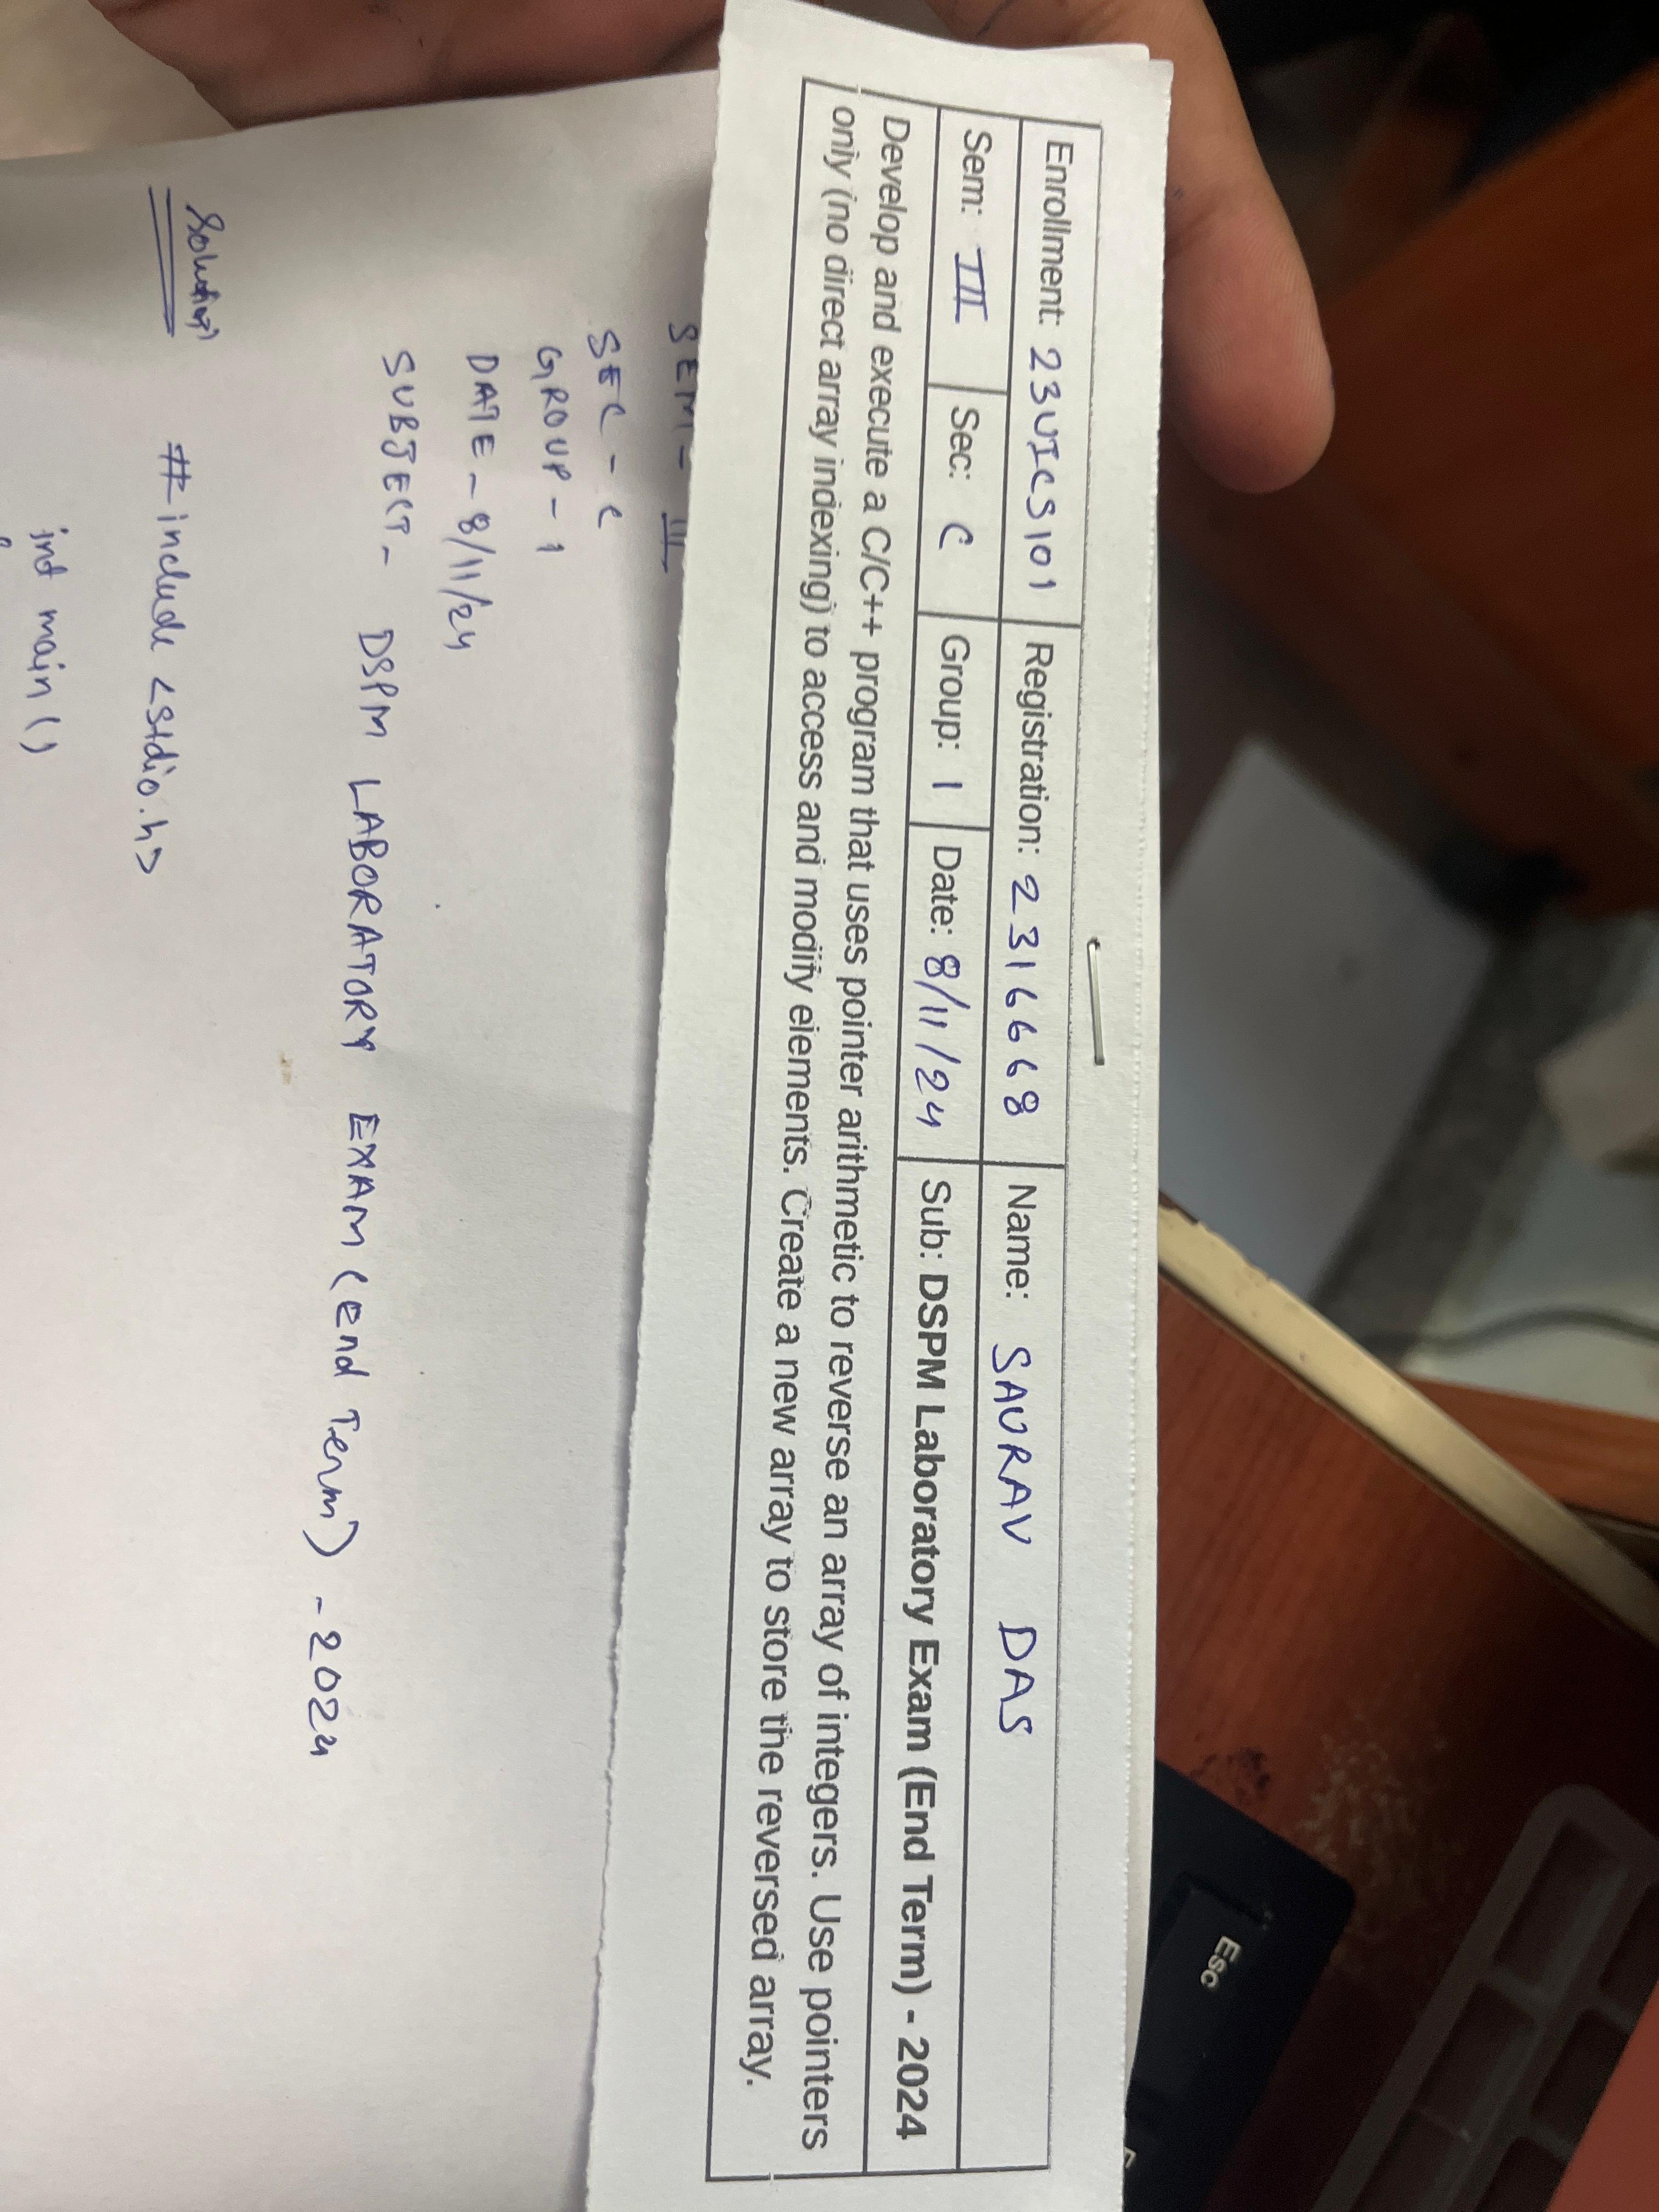 Enrollment: 23UICS101 Registration: 231668 Name: SAURAV DAS
Sem: III Sec: C Group: 1 Date: 8/11/24 Sub: DSPM Laboratory Exam (End Term) - 2024
Develop and execute a C/C++ program that uses pointer arithmetic to reverse an array of integers. Use pointers
only (no direct array indexing) to access and modify elements. Create a new array to store the reversed array.
SEM - III
SEC - C
GROUP - 1
DATE - 8/11/24
SUBJECT - DSPM LABORATORY EXAM (end Term) - 2024
Solution
#include <stdio.h>
int main()
Esc